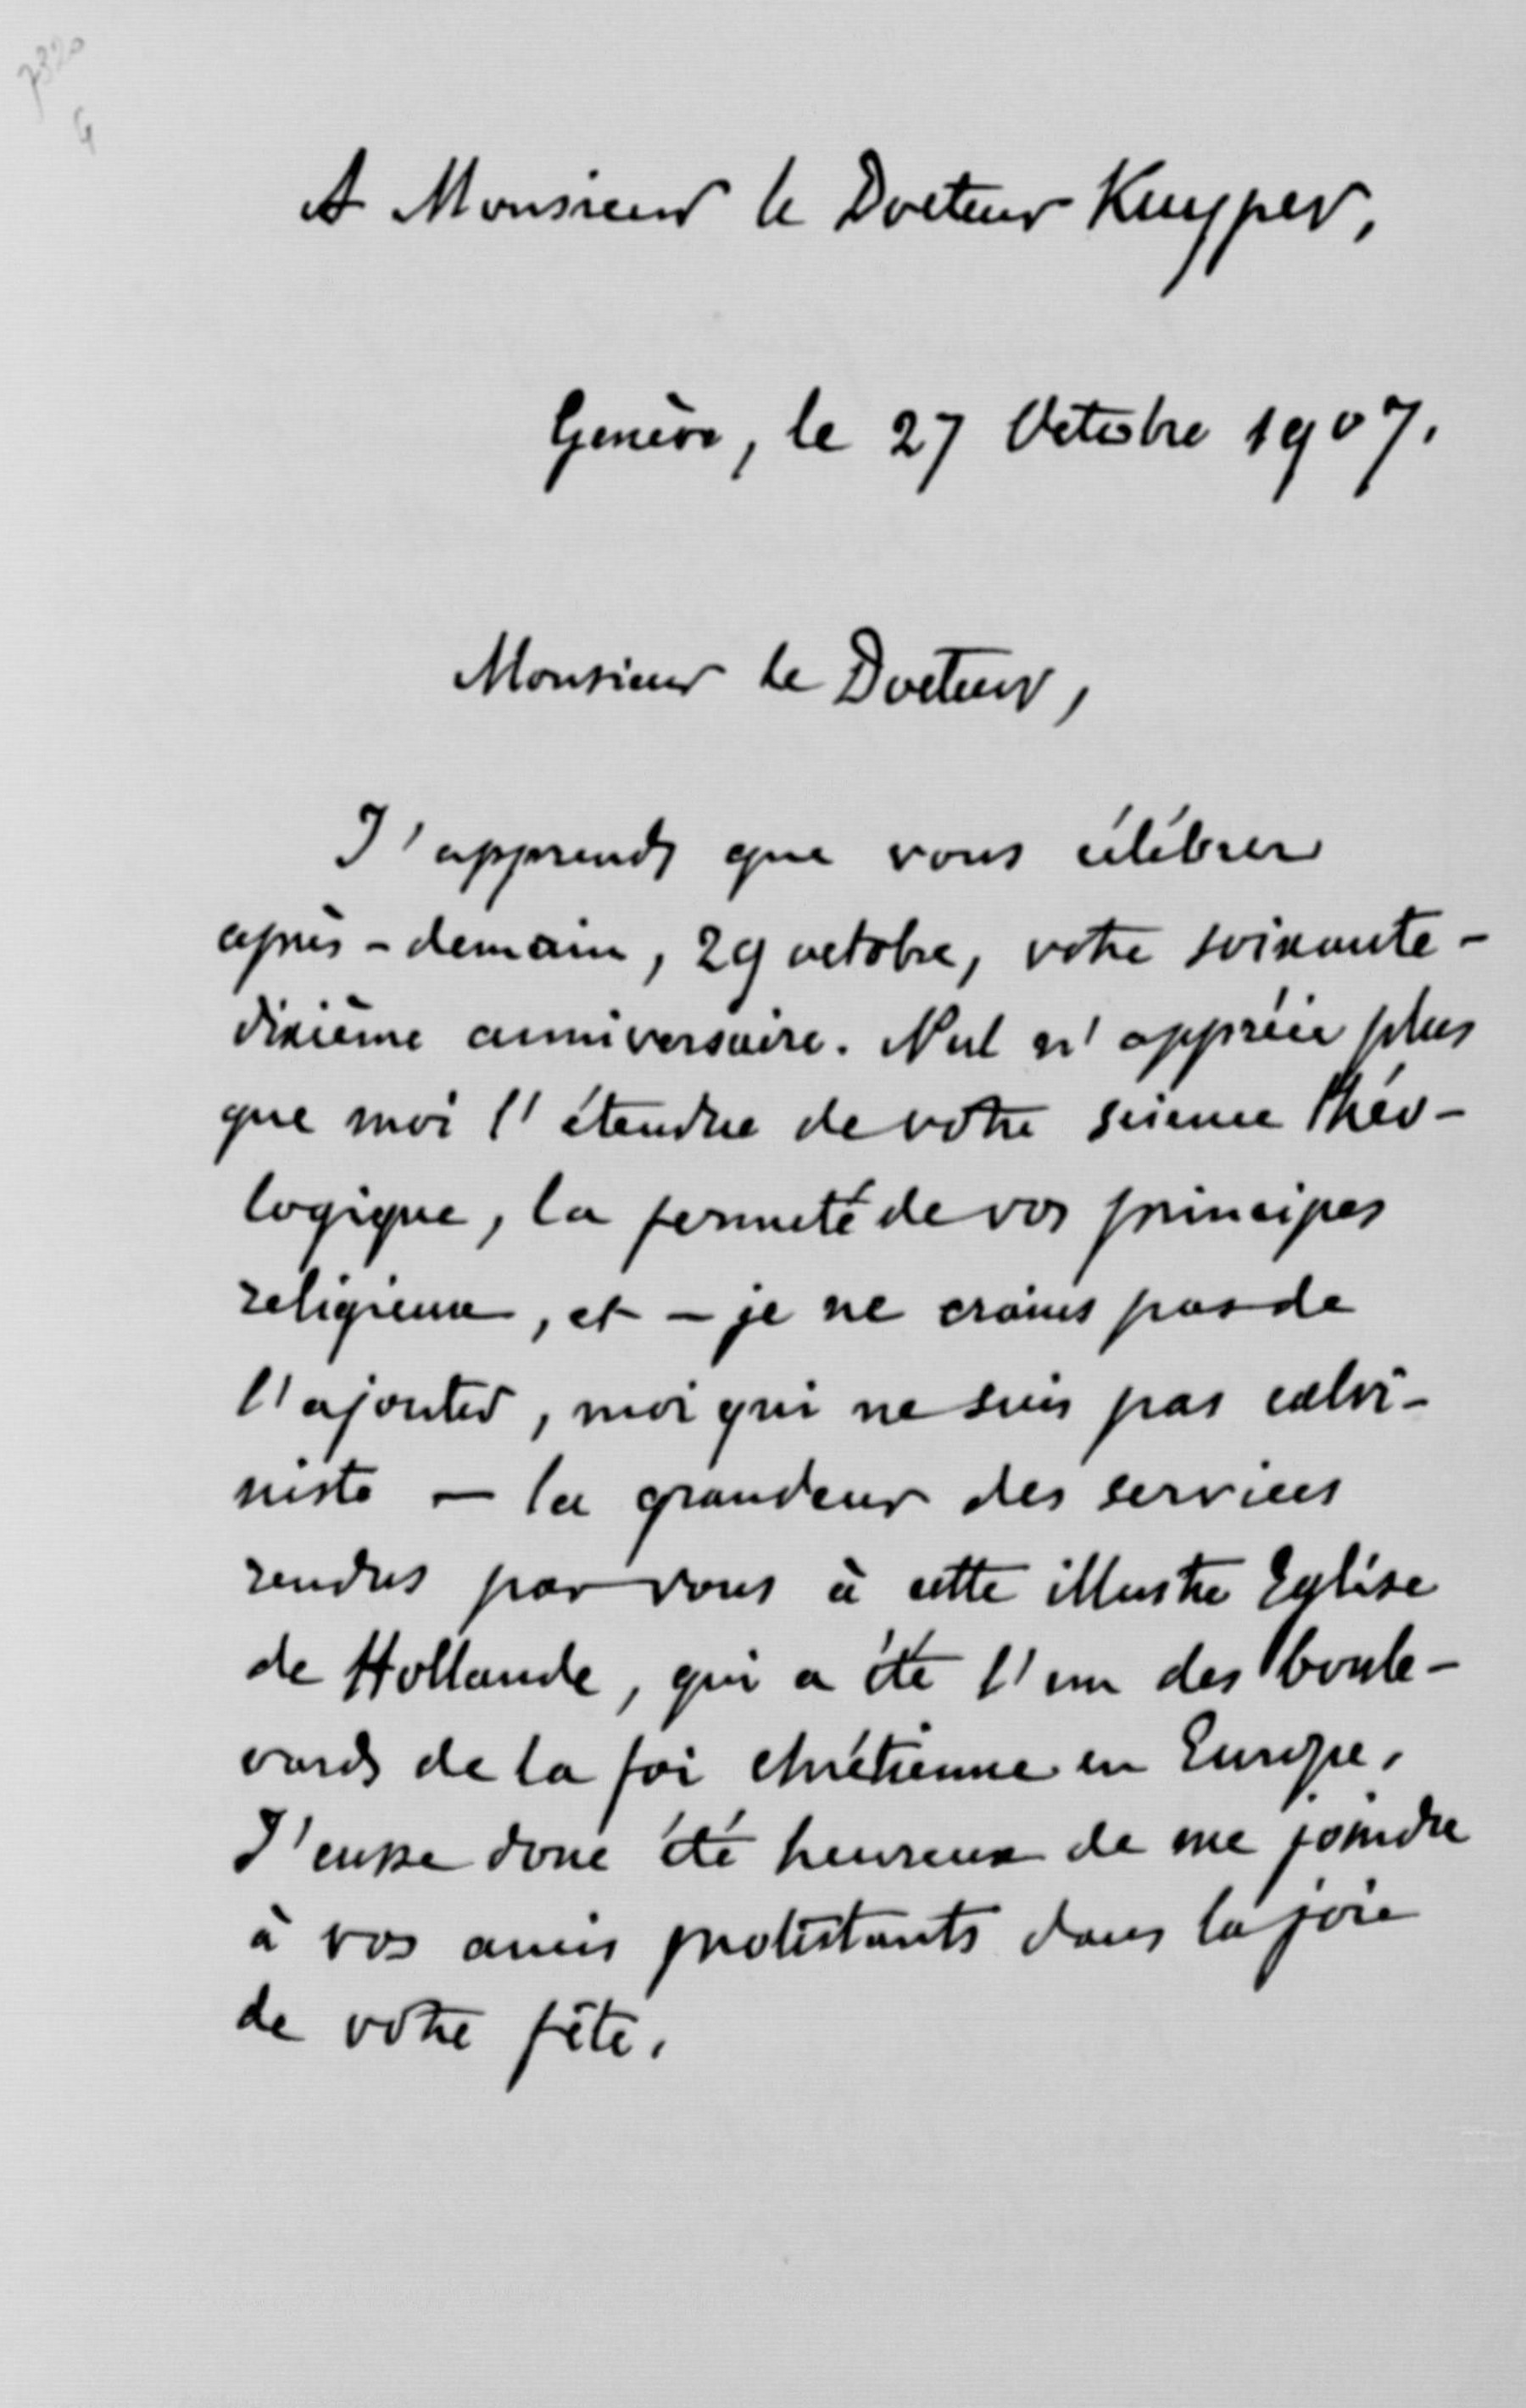 7320
G
A Monsieur le Docteur Kuyper,
Genève, le 27 Octobre 1907.
Monsieur le Docteur,
J'apprends que vous célébrez
après-demain, 29 octobre, votre soixante-
dixième anniversaire. Nul n'apprécie plus
que moi l'étendue de votre science théo-
logique, la fermeté de vos principes
religieux, et – je ne crains pas de
l'ajouter, moi qui ne suis pas calvi-
niste – la grandeur des services
rendus par vous à cette illustre Eglise
de Hollande, qui a été l'un des boule-
vards de la foi chrétienne en Europe.
J'eusse donc été heureux de me joindre
à vos amis protestants dans la joie
de votre fête.